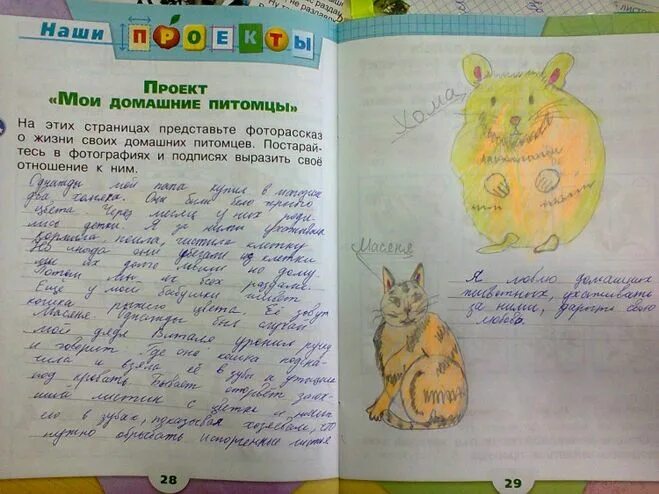 Наши ПРОЕКТЫ
ПРОЕКТ
«МОИ ДОМАШНИЕ ПИТОМЦЫ»
На этих страницах представьте фоторассказ
о жизни своих домашних питомцев. Постарай-
тесь в фотографиях и подписях выразить своё
отношение к ним.
Однажды мой папа купил в магазине
два хомяка. Они были бело черного
цвета. Через месяц у них роди-
лись детки. Я за ними ухаживала
кормила, поила, чистила клетку
Но иногда они убегали из клетки
мы их долго ловили по дому.
Потом мы их всех раздали.
Ещё у моей бабушки живёт
кошка рыжего цвета. Её зовут
Масяня. Однажды был случай
мой дядя Виталя уронил ручку
и говорит Где она кошка
и взяла её в зубы и
под кровать бывает оторвёт
листик с цветка и
его в зубах, показывая хозяевам, что
нужно обрывать испорченные листья
28
Хома
Масяня
Я люблю домашних
животных, ухаживать
за ними, дарить свою
любовь.
29